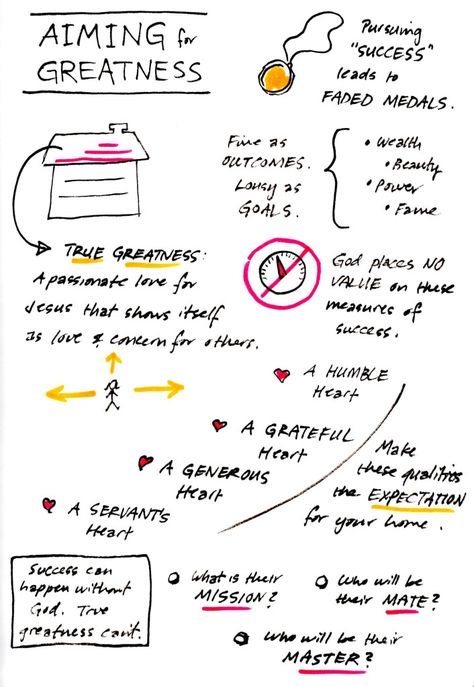 AIMING for
GREATNESS
Pursuing
"SUCCESS"
leads to
FADED MEDALS.
Fine as
OUTCOMES.
Lousy as
GOALS.
• Wealth
• Beauty
• Power
• Fame
TRUE GREATNESS:
A passionate love for
Jesus that shows itself
Is love & concern for others.
God places NO
VALUE on these
measures of
success.
A HUMBLE
Heart
A GRATEFUL
Heart
A GENEROUS
Heart
A SERVANT'S
Heart
Make
these qualities
the EXPECTATION
for your home.
Success can
happen without
God. True
greatness can't.
What is their
MISSION?
Who will be
their MATE?
Who will be their
MASTER?